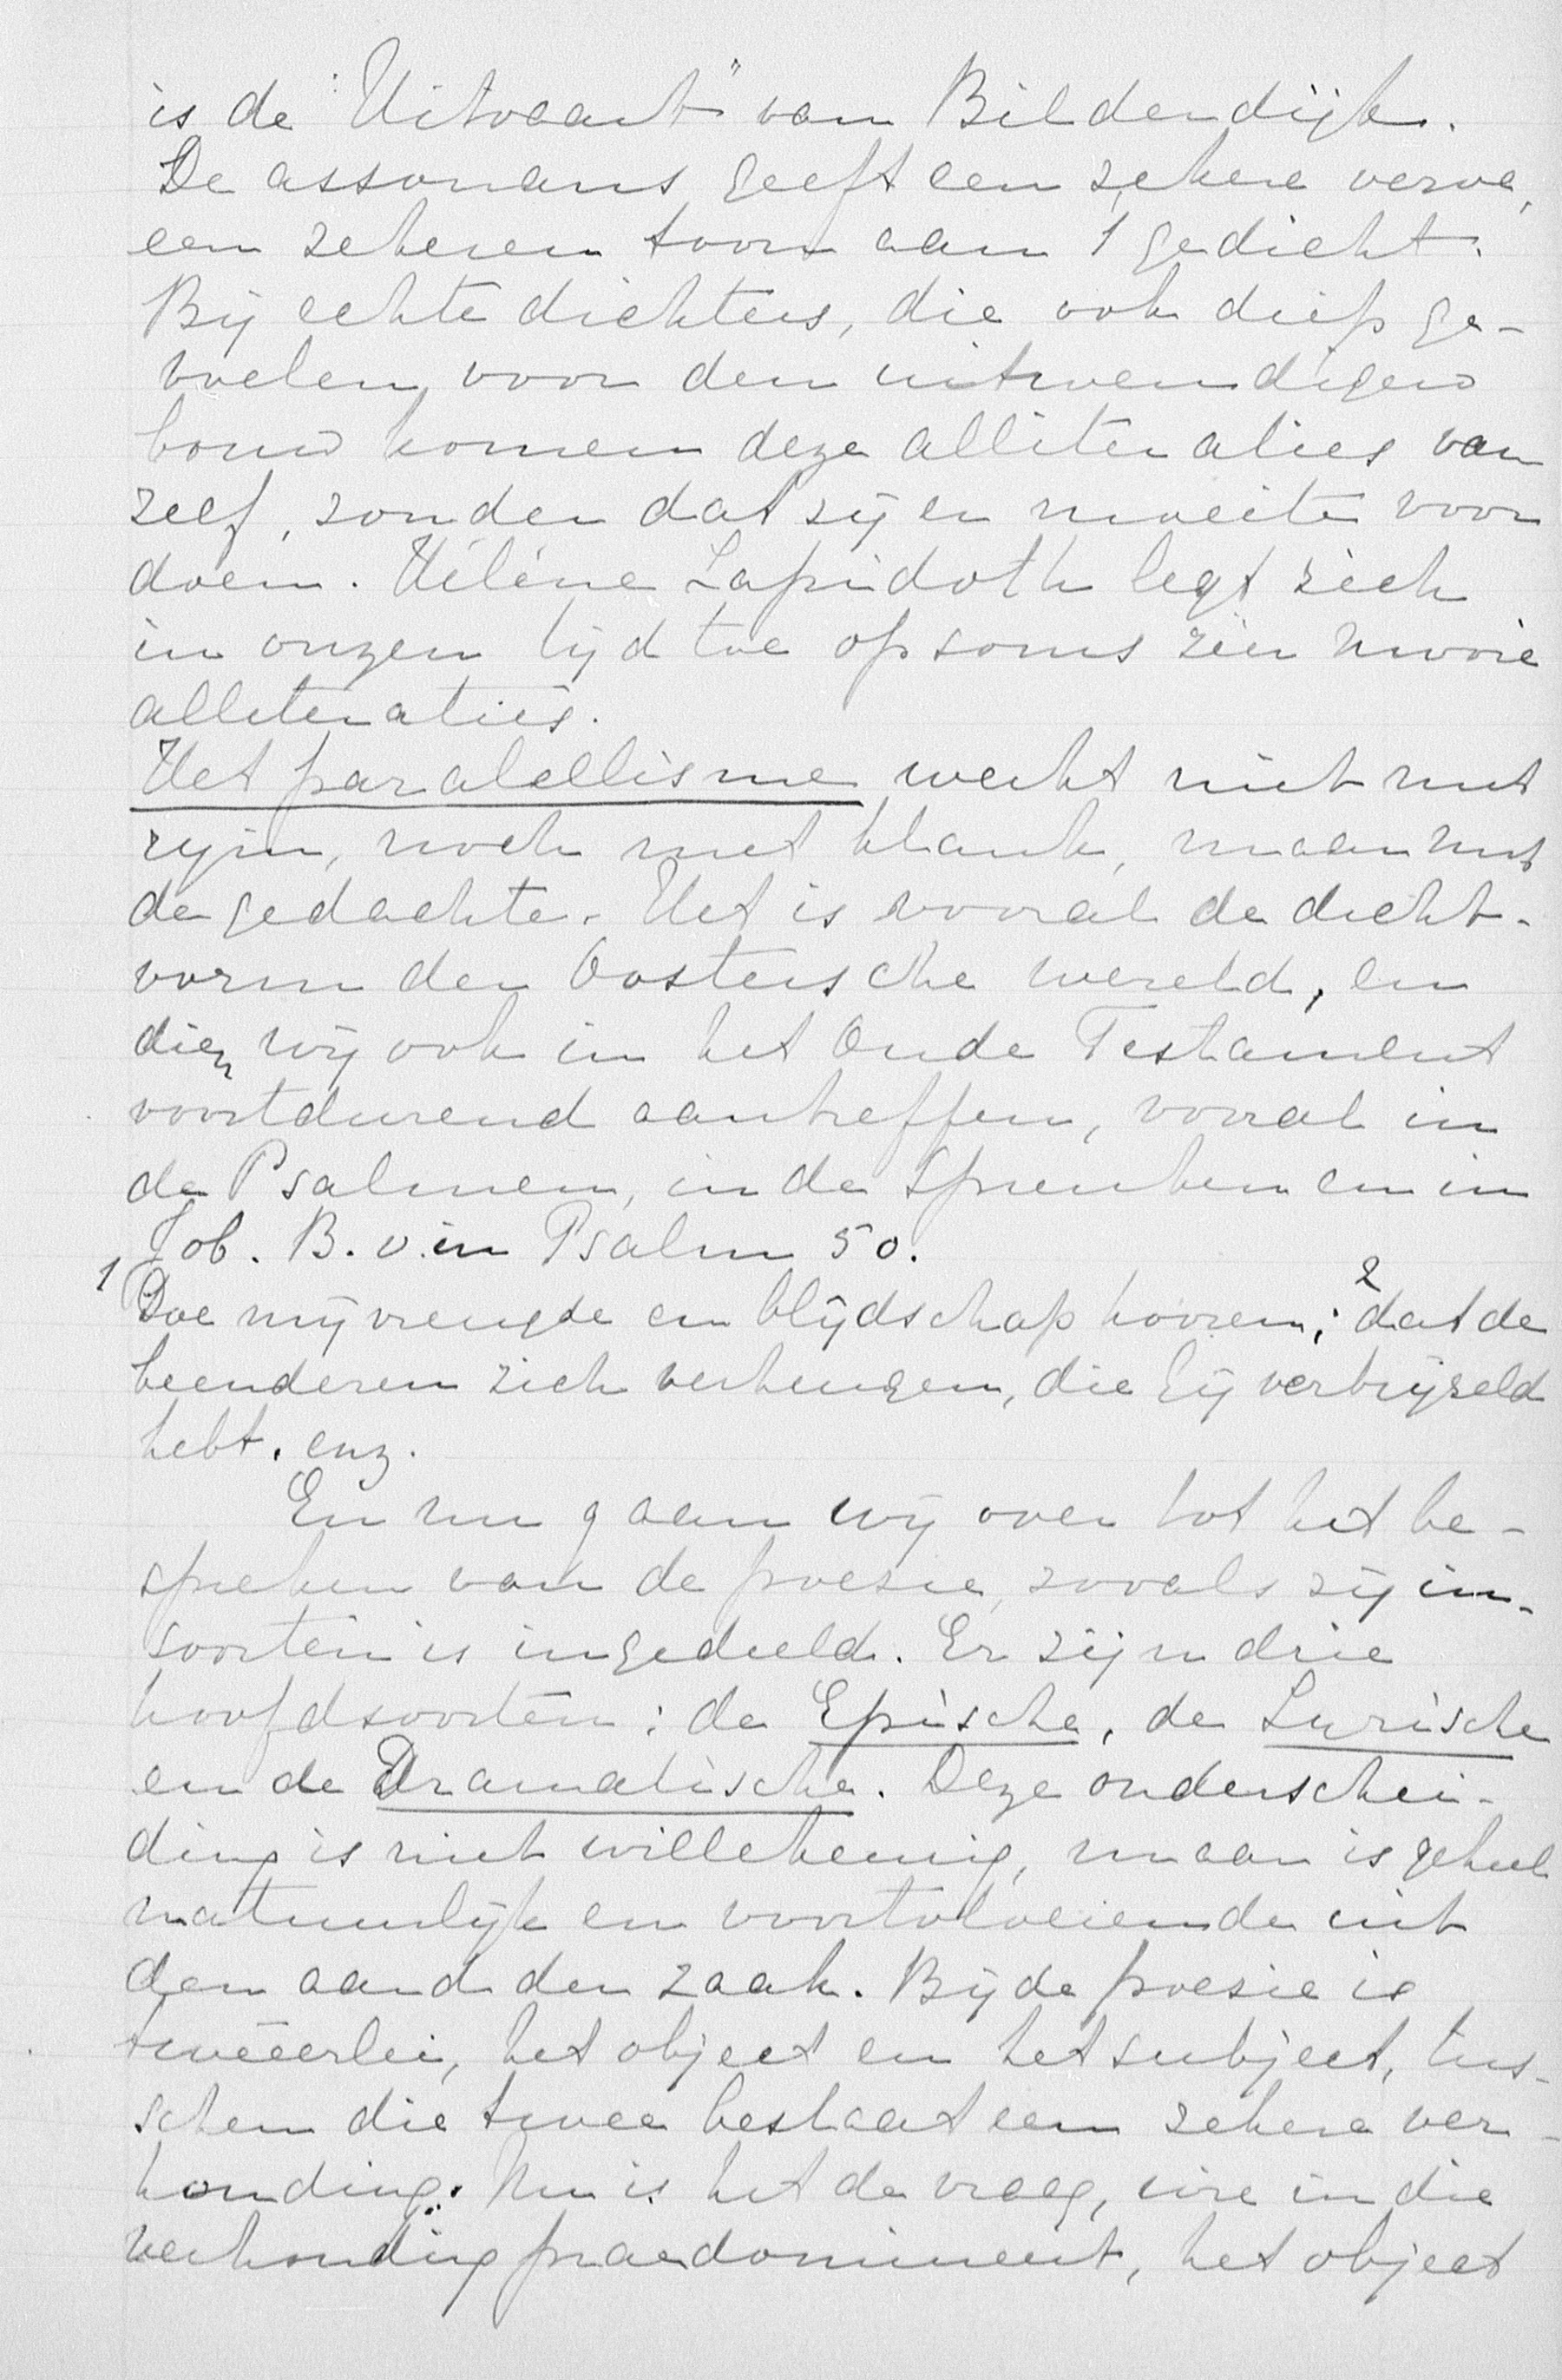 is de "Uitvaart" van Bilderdijk.
De assonans geeft een zekere verve,
een zekeren toon aan 1 gedicht.
Bij echte dichters, die ook diep ge-
voelen, voor den uitwendigen
bouw komen deze alliteraties van
zelf, zonder dat zij er moeite voor
doen. Hélène Lapidoth legt zich
in onzen tijd toe op soms zéér mooie
alliteraties.
Het paralellisme werkt niet met
rijm, noch met klank, maar met
de gedachte. Het is vooral de dicht-
vorm der Oostersche wereld, en
dien wij ook in het Oude Testament
voortdurend aantreffen, vooral in
de Psalmen, in de Spreuken en in
Job. B.v. in Psalm 50.
1 Doe mij vreugde en blijdschap hooren; 2 dat de
beenderen zich verheugen, die Gij verbrijzeld
hebt. enz.
En nu gaan wij over tot het be-
spreken van de poesie, zooals zij in-
soorten is ingedeeld. Er zijn drie
hoofdsoorten: de Epische, de Lyrische
en de Dramatische. Deze onderschei-
ding is niet willekeurig, maar is geheel
natuurlijk en voortvloeiende uit
den aard der zaak. Bij de poesie is
tweeërlei, het object en het subject, tus-
schen die twee bestaat een zekere ver-
houding. Nu is het de vraag, wie in die
verhouding praedomineert, het object